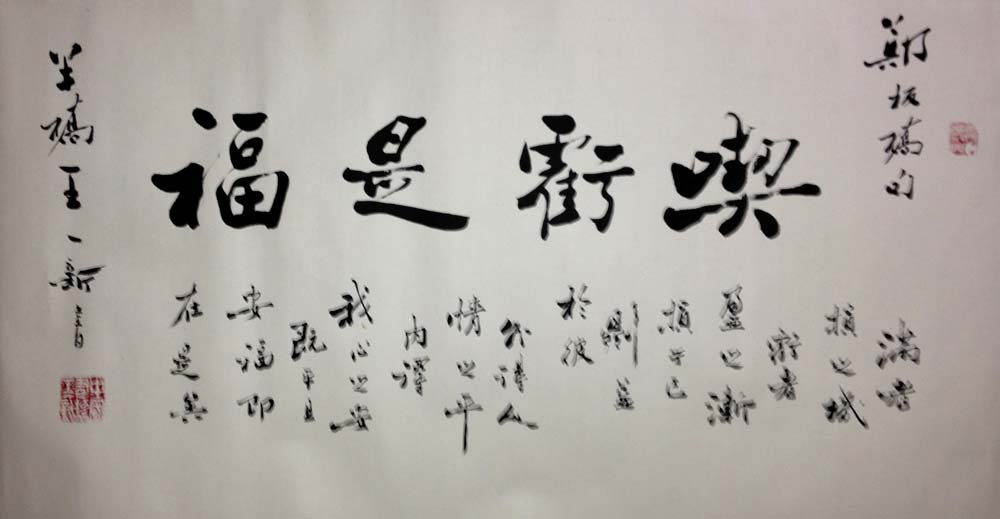 鄭板橋句
喫虧是福
滿者
損之機
虧者
盈之漸
損于己
則益
於彼
外得人
情之平
內得
我心之安
既平且
安福即
在是矣
羊橋王一新書